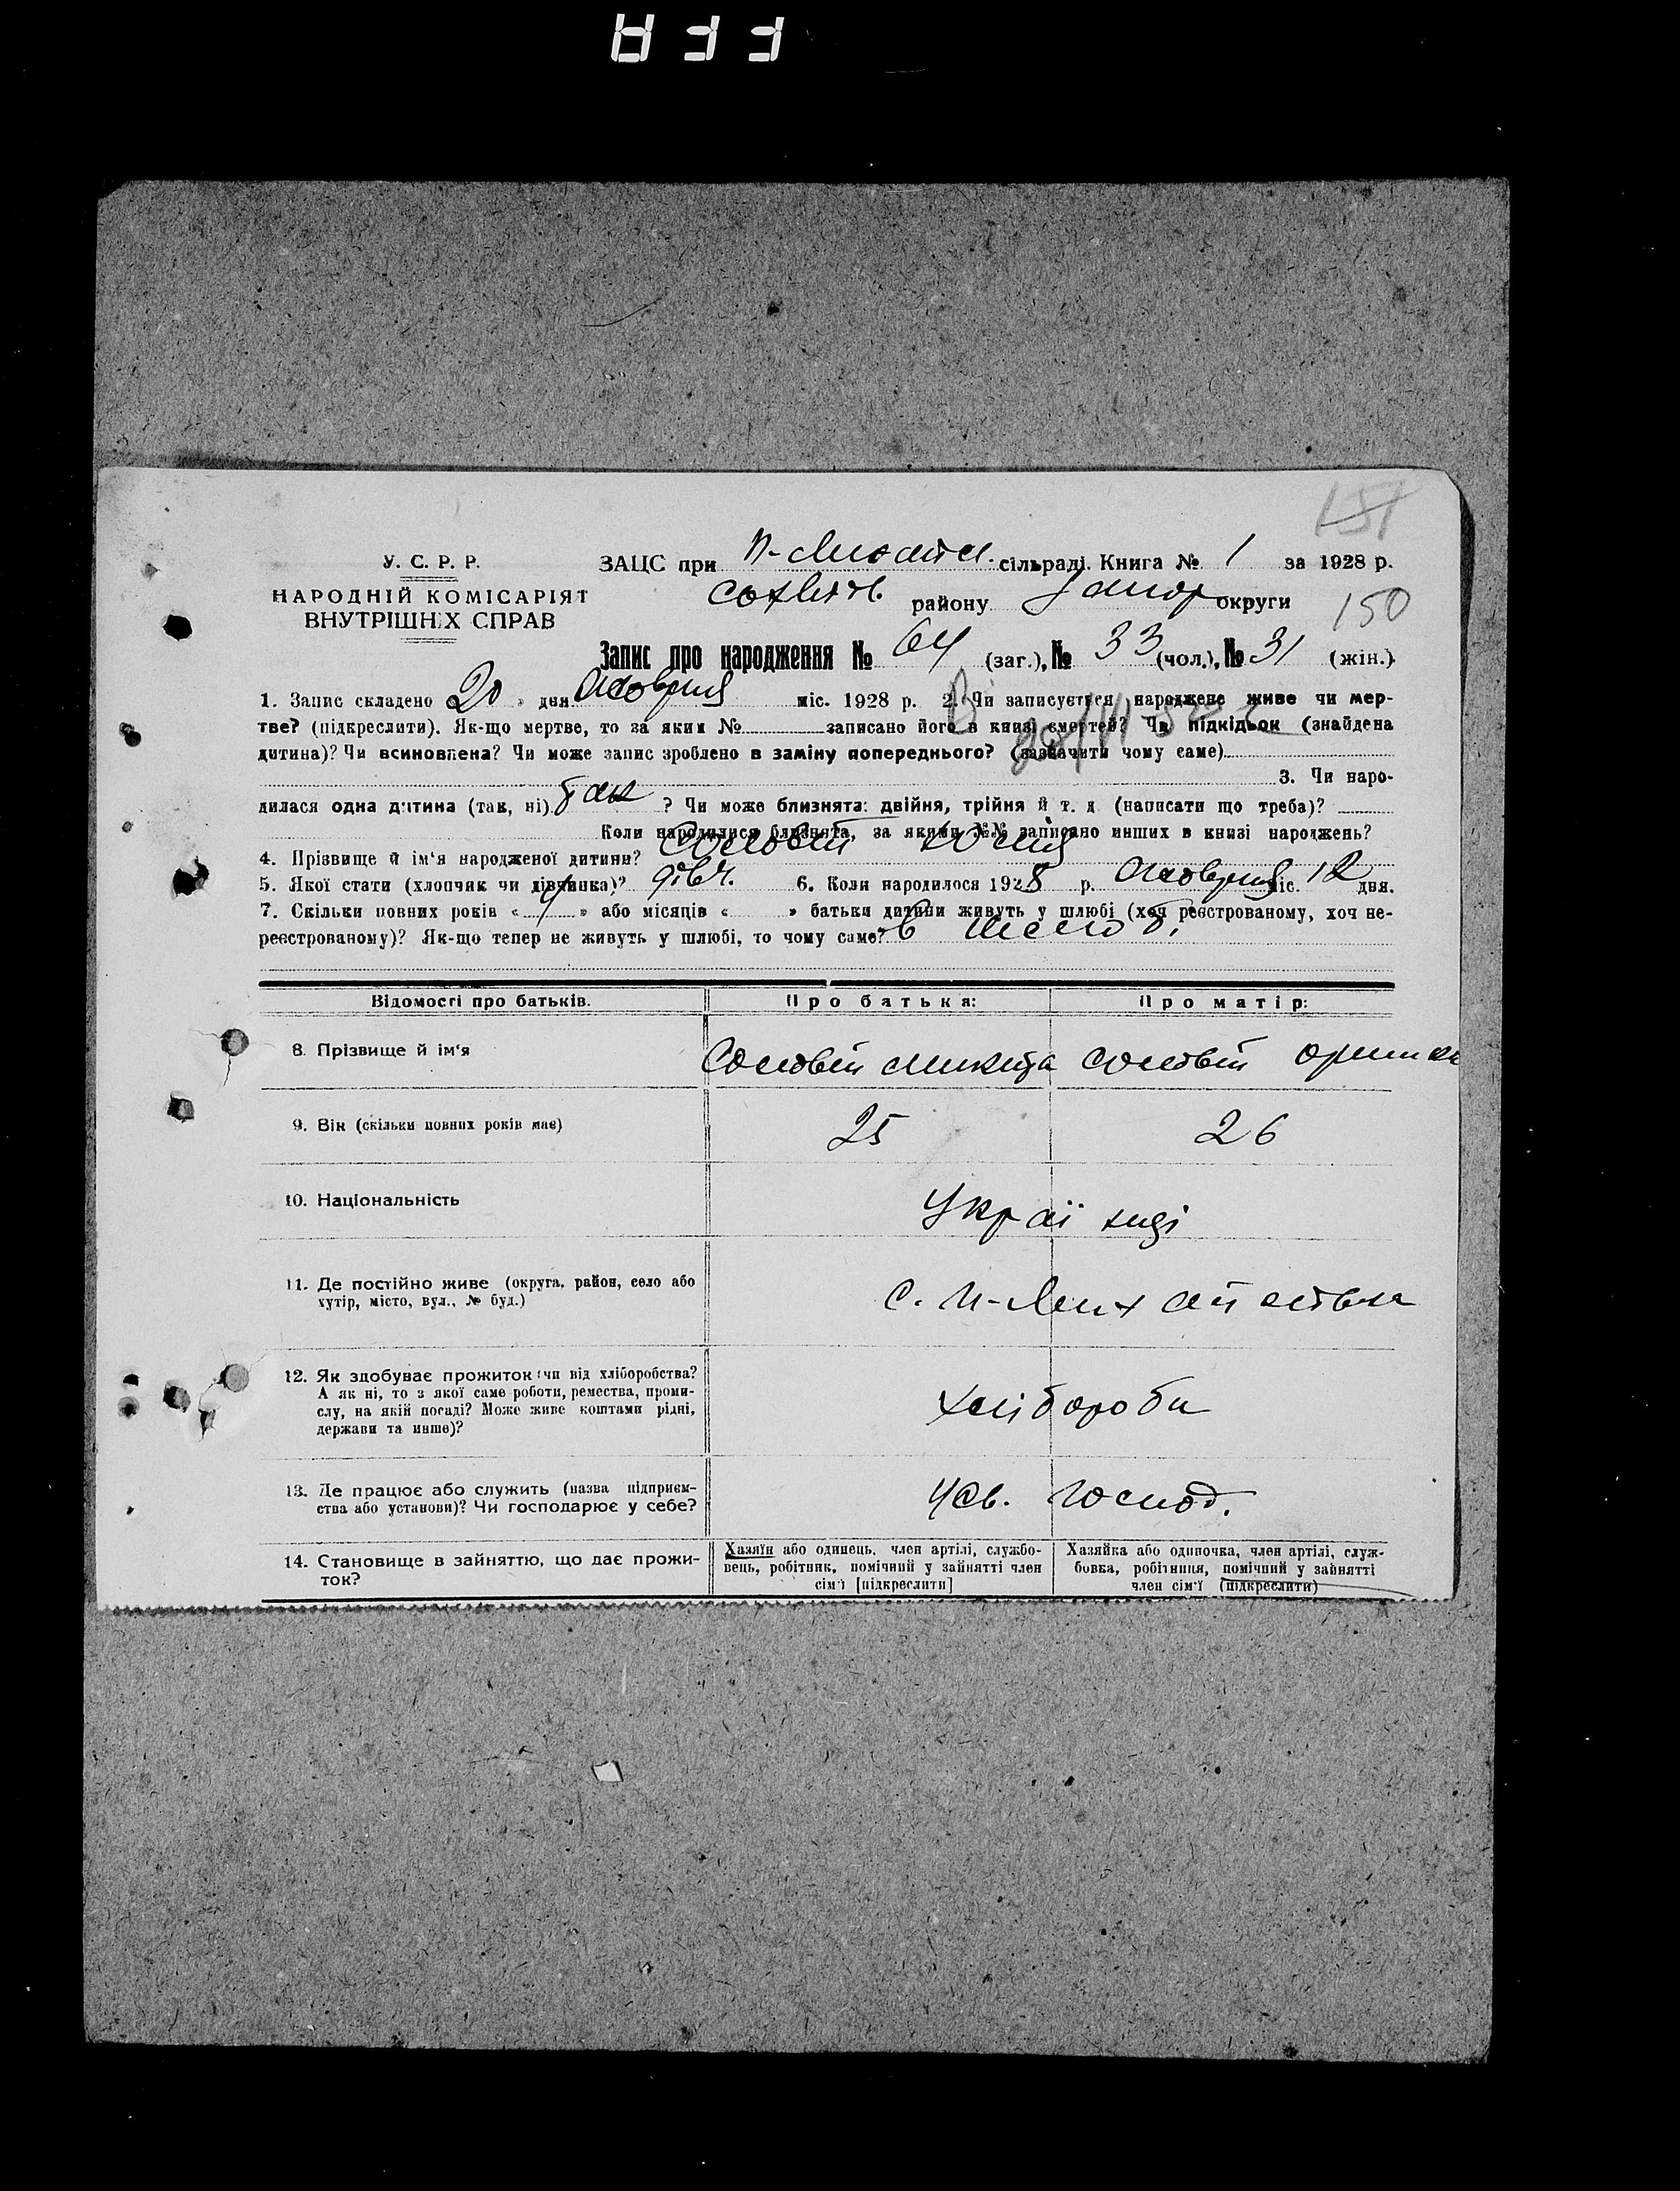 У. С. Р. Р.
НАРОДНІЙ КОМІСАРІЯТ
ВНУТРІШНІХ СПРАВ
ЗАЦС при сільраді. Книга № 1 за 1928 р.
району Запор округи
150
Запис про народження № 64 (заг.), № 33 (чол.), № 31 (жін.).
1. Запис складено 20 дня міс. 1928 р. 2. Чи записується народжене живе чи мер-
тве? (підкреслити). Як-що мертве, то за яким № записано його в книзі смертей? Чи підкідьок (знайдена
дитина)? Чи всиновлена? Чи може запис зроблено в заміну попереднього? (зазначити чому саме)
3. Чи наро-
дилася одна дитина (так, ні) так ? Чи може близнята: двійня, трійня й т. д. (написати що треба)?
Коли народилися близнята, за якими №№ записано инших в книзі народжень?
4. Прізвище й ім'я народженої дитини? Соловій
5. Якої стати (хлопчик чи дівчинка)? дівч. 6. Коли народилося 1928 р. міс. 12 дня.
7. Скільки повних років « 4 » або місяців « » батьки дитини живуть у шлюбі (хоч реєстрованому, хоч не-
реєстрованому)? Як-що тепер не живуть у шлюбі, то чому саме? в шлюбі
Відомості про батьків. Про батька: Про матір:
8. Прізвище й ім'я Соловій Микита Соловій
9. Вік (скільки повних років має) 25 26
10. Національність Україньці
11. Де постійно живе (округа, район, село або
хутір, місто, вул., № буд.)
12. Як здобуває прожиток: чи від хліборобства?
А як ні, то з якої саме роботи, ремества, проми-
слу, на якій посаді? Може живе коштами рідні,
держави та инше)?
хлібороби
13. Де працює або служить (назва підприєм-
ства або установи)? Чи господарює у себе?
У св. господ.
14. Становище в зайняттю, що дає прожи-
ток?
Хазяїн або одинець, член артілі, службо-
вець, робітник, помічний у зайнятті член
сім'ї [підкреслити]
Хазяйка або одиночка, член артілі, служ-
бовка, робітниця, помічний у зайнятті
член сім'ї (підкреслити)